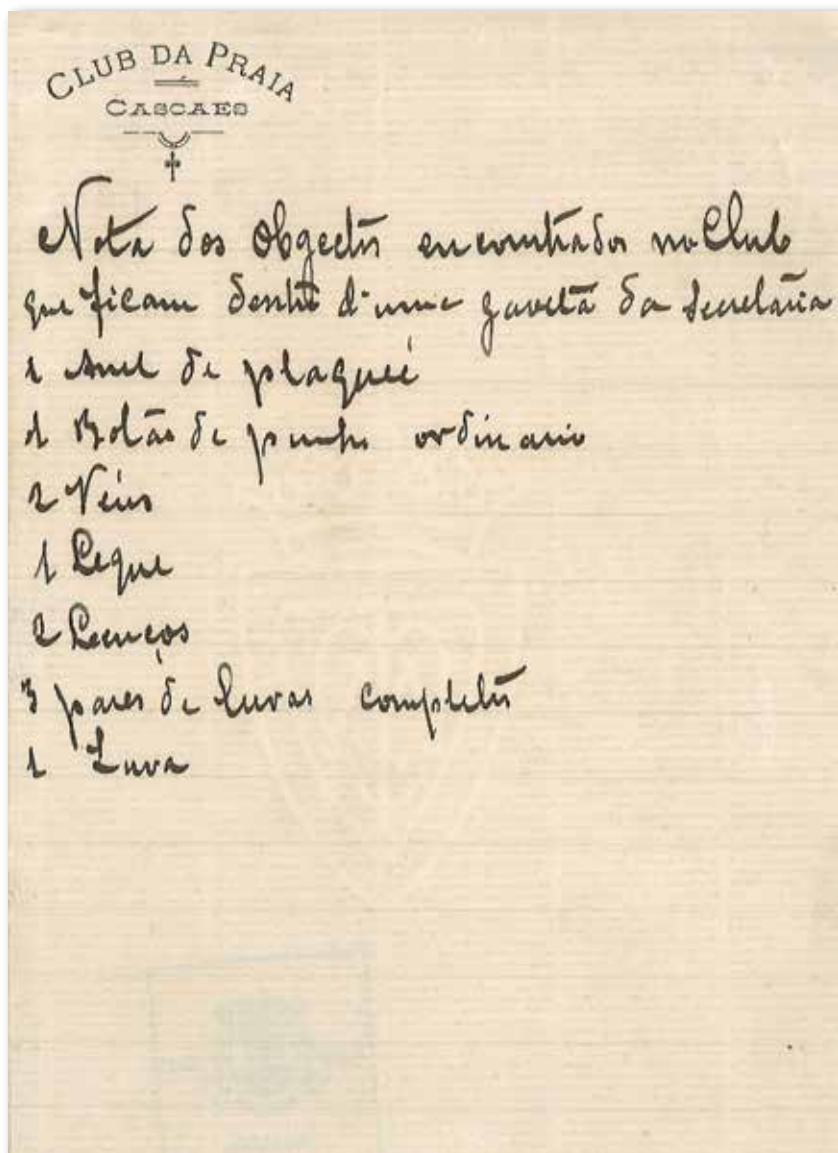 CLUB DA PRAIA
CASCAES
Nota dos Obgectos encontrados no Club
que ficam dentro d'uma gaveta da Secretaria
1 Anel de plaqueé
1 Botão de punho ordinario
2 Véius
1 Leque
2 Lenços
3 pares de luvas completos
1 Luva